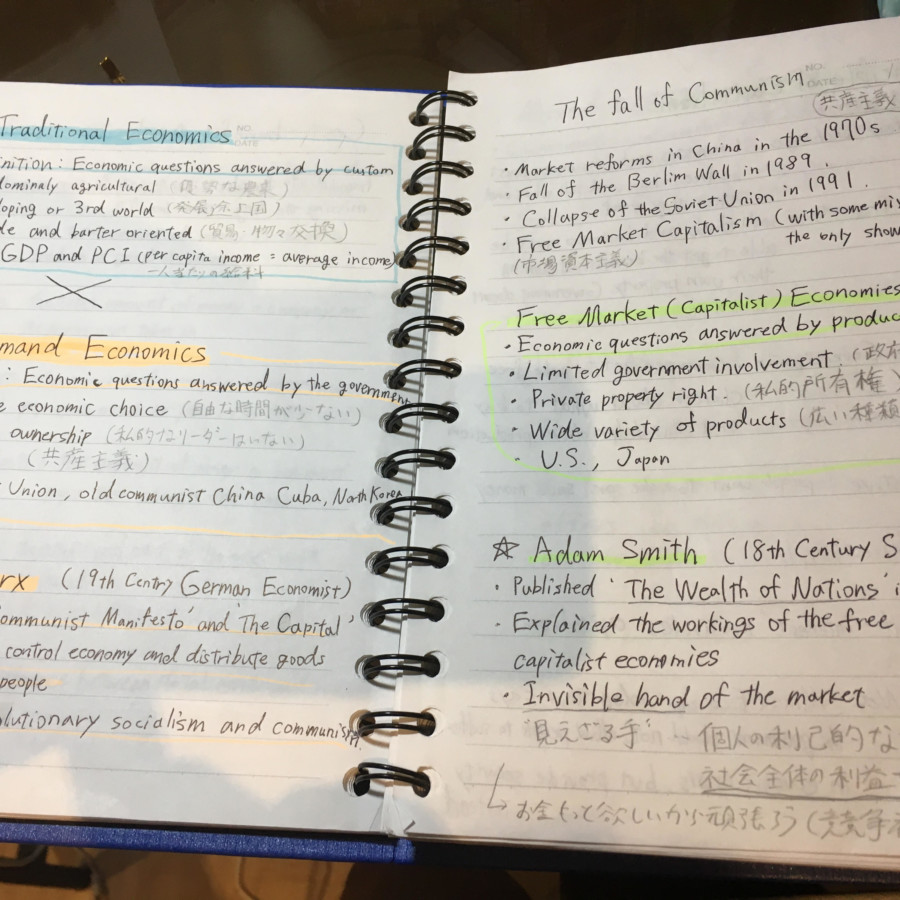 Traditional Economics
inition : Economic questions answered by custom
dominaly agricultural
loping or 3rd world (発展途上国)
de and barter oriented (貿易・物々交換)
GDP and PCI (per capita income = average income)
mand Economics
: Economic questions answered by the government
e economic choice (自由な時間が少ない)
ownership (私的なリーダーはいない)
(共産主義)
Union, old communist China Cuba, North Korea
rx (19th Centry German Economist)
ommunist Manifesto' and 'The Capital'
control economy and distribute goods
people
olutionary socialism and communism
NO.
DATE
The fall of Communism
(共産主義
・Market reforms in China in the 1970s
・Fall of the Berlim Wall in 1989.
・Collapse of the Soviet Union in 1991.
・Free Market Capitalism (with some mi
the only show
(市場資本主義)
Free Market (Capitalist) Economies
・Economic questions answered by produc
・Limited government involvement (政府
・Private property right. (私的所有権)
・Wide variety of products (広い種類
・U.S., Japan
☆ Adam Smith (18th Century S
・Published 'The Wealth of Nations' i
・Explained the workings of the free
capitalist economies
・Invisible hand of the market
"見えざる手" 個人の利己的な
社会全体の利益
↳お金もって欲しいから頑張ろう(競争